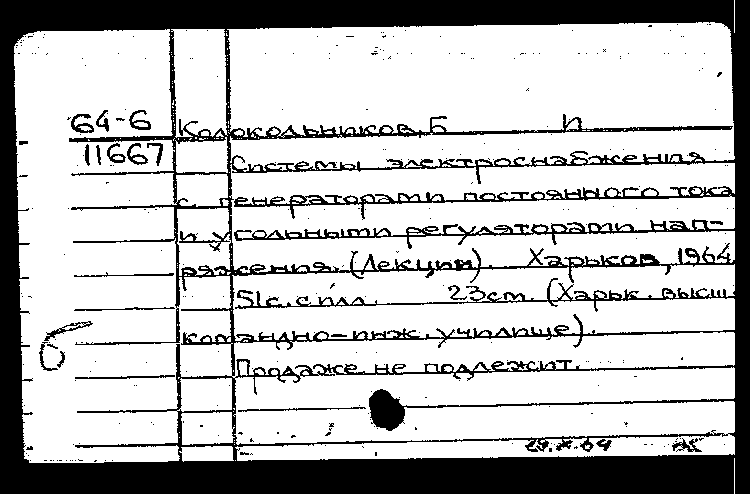 64-6 Колокольников, Б П
11667 Системы электроснабжения
с генераторами постоянного тока
и угольными регуляторами нап-
ряжения. (Лекции). Харьков, 1964.
51с. с илл. 23см. (Харьк. высш.
командно-инж. училище).
б
Продаже не подлежит.